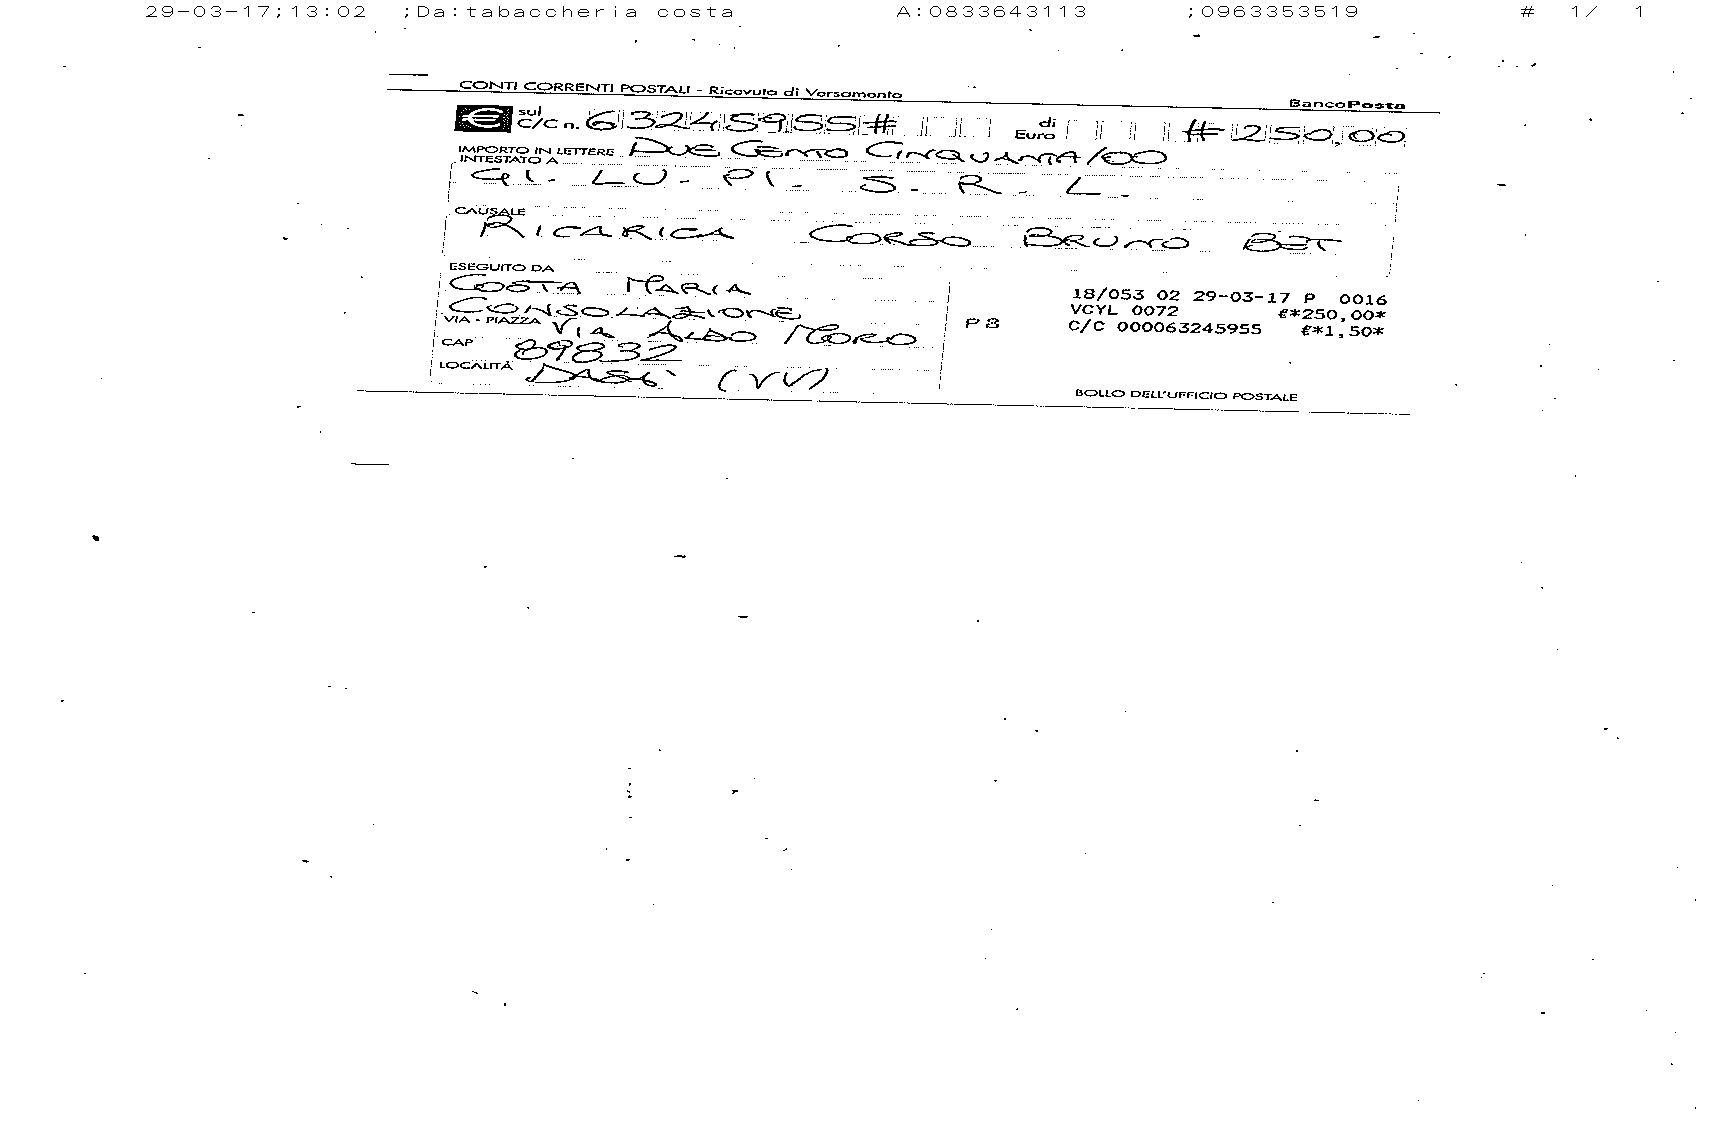 29-03-17;13:02 ;Da:tabaccheria costa A:0833643113 ;0963353519 # 1/ 1
CONTI CORRENTI POSTALI - Ricevuta di Versamento
BancoPosta
€ sul C/C n. 63245955# di Euro #250,00
IMPORTO IN LETTERE DUE CENTO CINQUANTA/00
INTESTATO A
GI. LU. PI. S. R. L.
CAUSALE
RICARICA CORSO BRUNO BET
ESEGUITO DA
COSTA MARIA
CONSOLAZIONE
VIA - PIAZZA VIA ALDO MORO
CAP 89832
LOCALITÀ DASA' (VV)
P8
18/053 02 29-03-17 P 0016
VCYL 0072 €*250,00*
C/C 000063245955 €*1,50*
BOLLO DELL'UFFICIO POSTALE